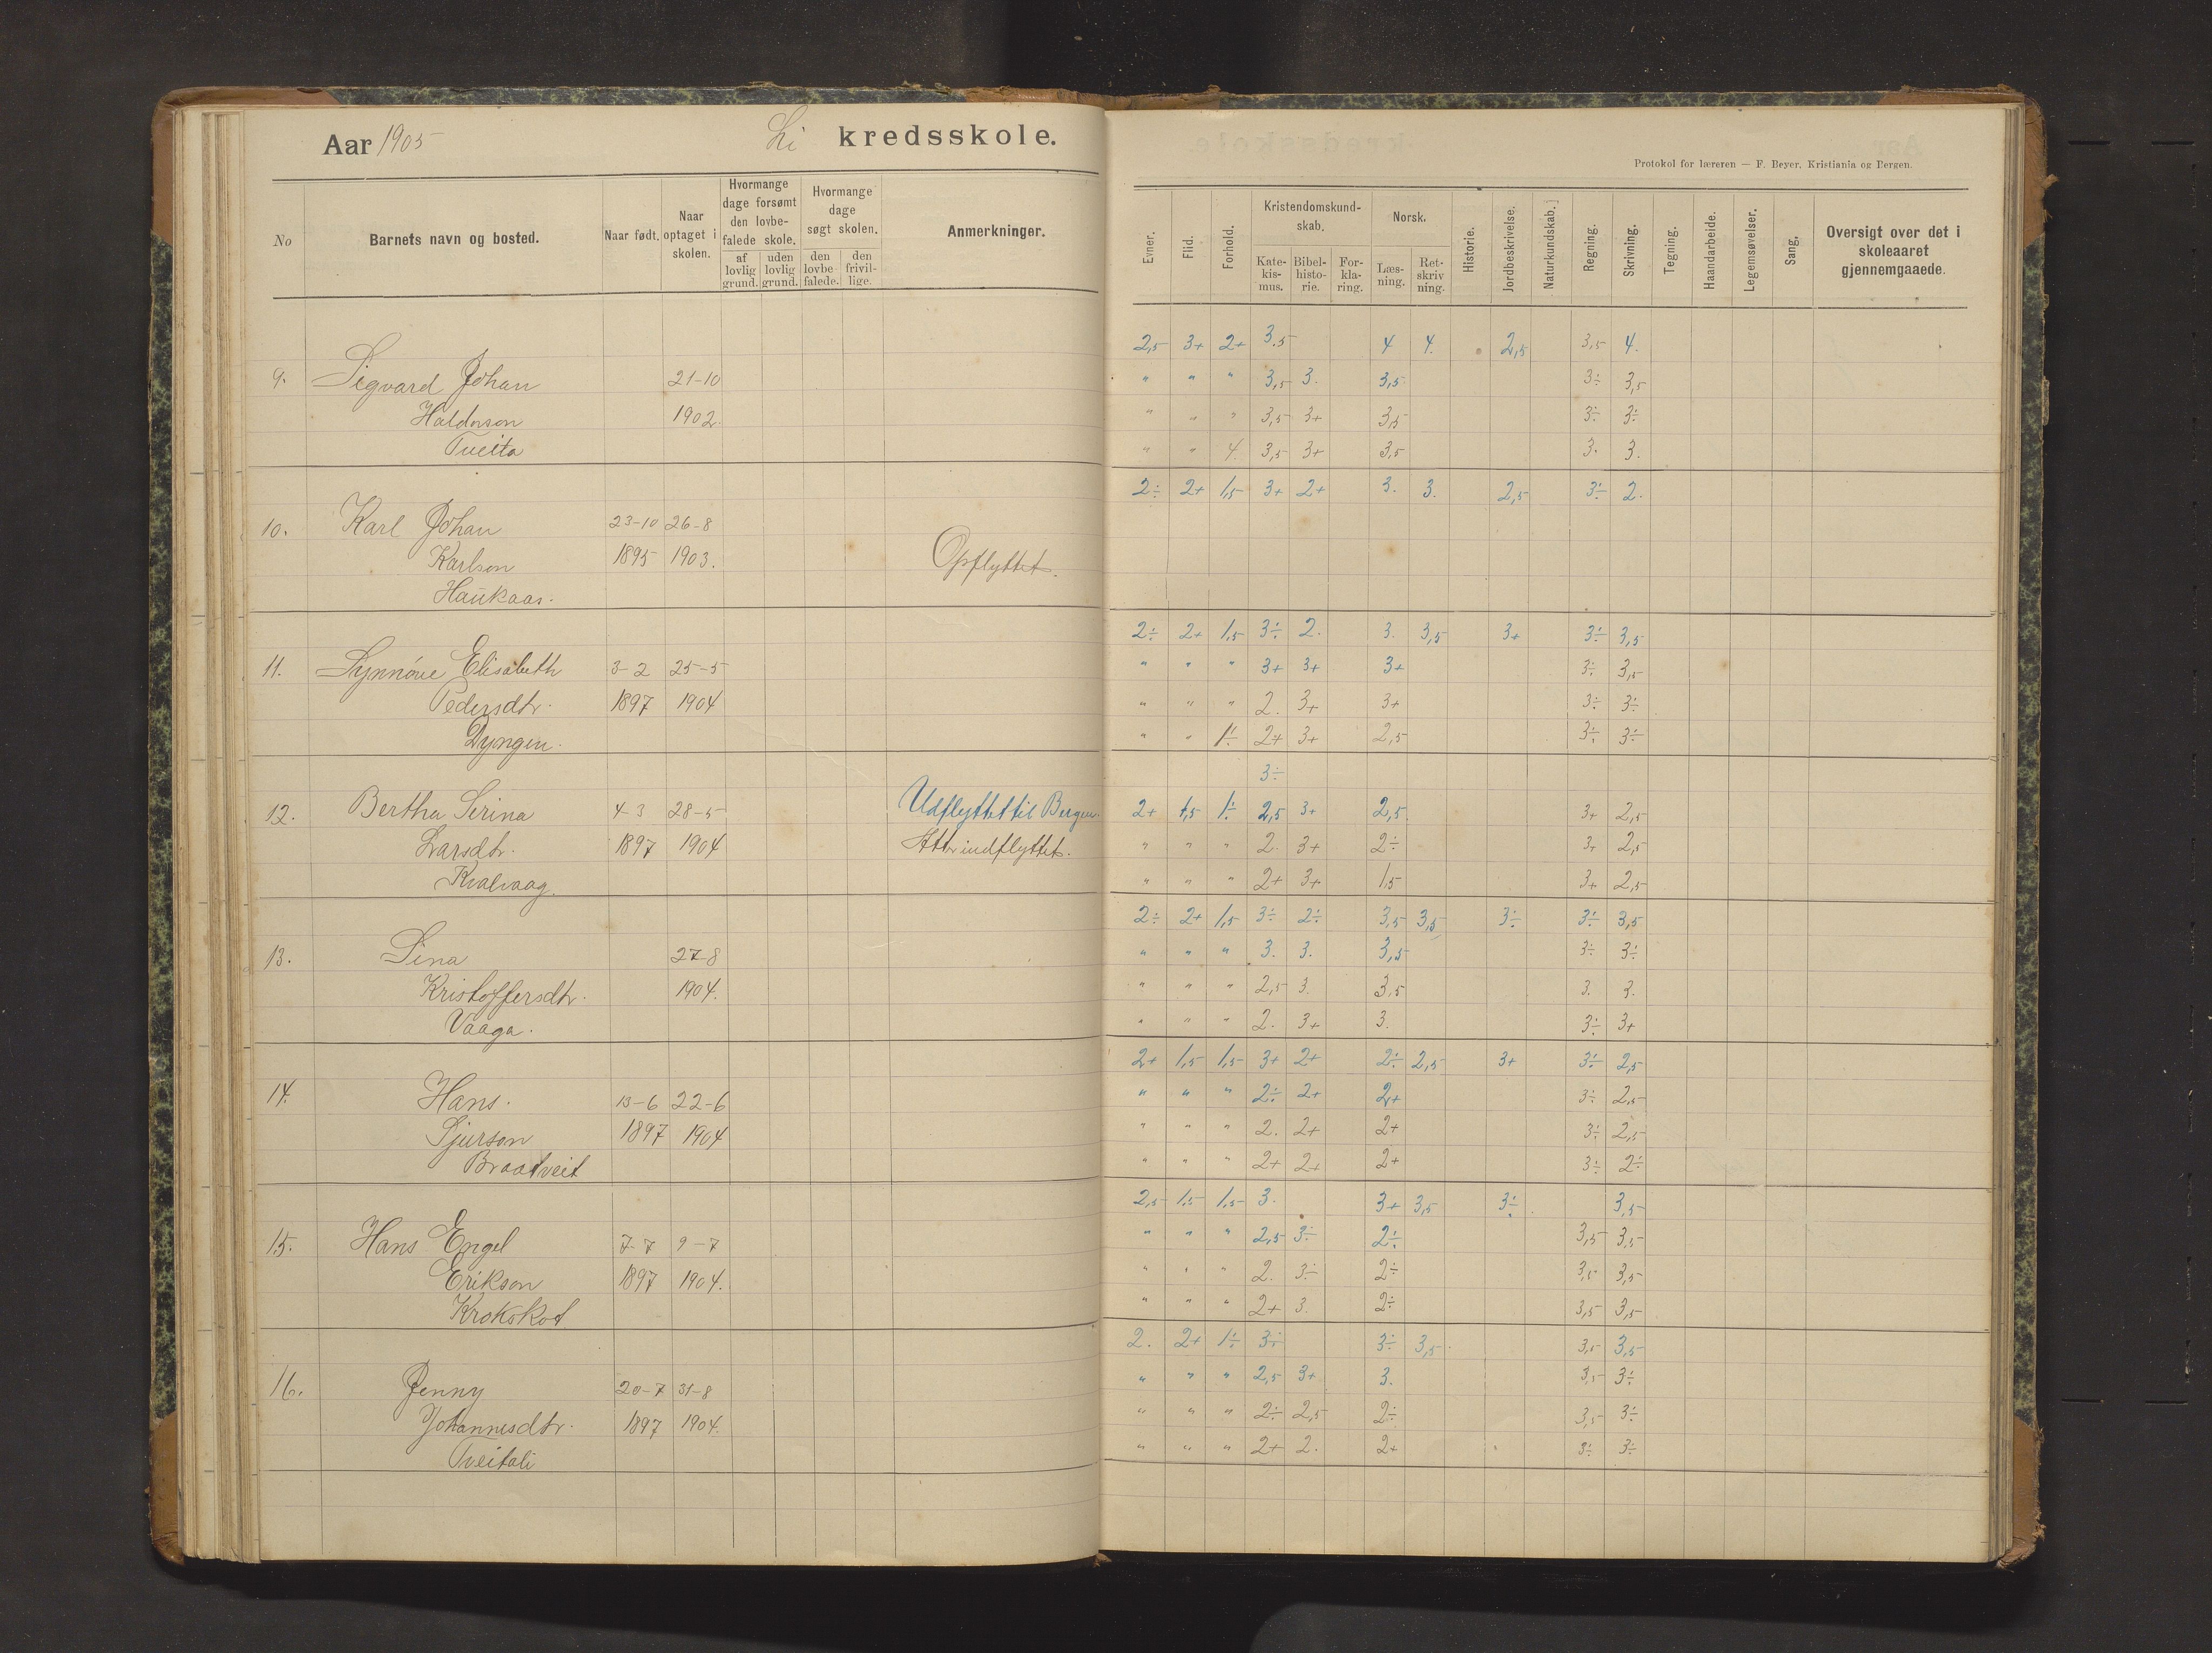 Aar 1905 Li kredsskole.
No
Barnets navn og bosted.
Naar født.
Naar optaget i skolen.
Hvormange dage forsømt den lovbefalede skole.
af lovlig grund.
uden lovlig grund.
Hvormange dage søgt skolen.
den lovbefalede.
den frivillige.
Anmerkninger.
9. Sigvard Johan 21-10
Haldorson 1902.
Tveita
10. Karl Johan 23-10 26-8
Karlson 1895 1903. Opflyttet.
Haukaas.
11. Synnöve Elisabeth 3-2 25-5
Pedersdtr. 1897 1904
Dyngen.
12. Bertha Serina 4-3 28-5 Udflyttet til Bergen.
Larsdtr. 1897 1904 Atter indflyttet.
Kvalvaag.
13. Sina 27-8
Kristoffersdtr. 1904.
Vaaga.
14. Hans. 13-6 22-6
Sjurson 1897 1904
Braatveit
15. Hans Engel 7-7 9-7
Erikson 1897 1904.
Krokskot
16. Jenny 20-7 31-8
Johannesdtr. 1897 1904.
Tveitali
Protokol for læreren — F. Beyer, Kristiania og Bergen.
Evner.
Flid.
Forhold.
Kristendomskundskab.
Katekismus.
Bibelhistorie.
Forklaring.
Norsk.
Læsning.
Retskrivning.
Historie.
Jordbeskrivelse.
Naturkundskab.
Regning.
Skrivning.
Tegning.
Haandarbeide.
Legemsøvelser.
Sang.
Oversigt over det i skoleaaret gjennemgaaede.
2,5 3+ 2+ 3,5 4 4. 2,5 3,5 4.
" " " 3,5 3. 3,5 3÷ 3,5
" " " 3,5 3+ 3,5 3÷ 3÷
" " 4. 3,5 3+ 3,5 3. 3.
2÷ 2+ 1,5 3+ 2+ 3. 3. 2,5 3÷ 2.
2÷ 2+ 1,5 3÷ 2. 3. 3,5 3+ 3÷ 3,5
" " " 3+ 3+ 3+ 3÷ 3,5
" " " 2. 3+ 3+ 3÷ 3÷
" " 1÷ 2+ 3+ 2,5 3÷ 3÷
3÷
2+ 1,5 1÷ 2,5 3+ 2,5. 3+ 2,5
" " " 2. 3+ 2÷ 3+ 2,5
" " " 2+ 3+ 1,5 3+ 2,5
2÷ 2+ 1,5 3÷ 2÷ 3,5 3,5 3÷ 3÷ 3,5
" " " 3. 3. 3,5 3÷ 3÷
" " " 2,5 3. 3,5 3. 3.
" " " 2. 3+ 3. 3÷ 3+
2+ 1,5 1,5 3+ 2+ 2÷ 2,5 3+ 3÷ 2,5
" " " 2÷ 2+ 2+ 3÷ 2,5
" " " 2. 2+ 2+ 3÷ 2,5
" " " 2+ 2+ 2+ 3÷ 2÷
2,5 1,5 1,5 3. 3+ 3,5 3÷ 3,5
" " " 2,5 3÷ 2÷ 3,5 3,5
" " " 2. 3÷ 2÷ 3,5 3,5
" " " 2+ 3. 2÷ 3,5 3,5
2. 2+ 1÷ 3÷ 3÷ 3,5. 3,5 3,5
" " " 2,5 3+ 3. 3,5 3÷
" " " 2÷ 2,5 2÷ 3,5 3÷
" " " 2+ 2. 2+ 3÷ 3÷